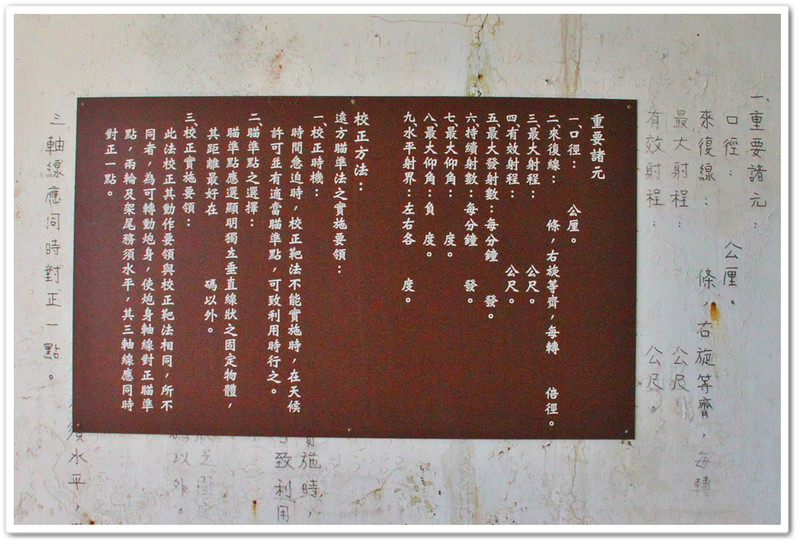 一、重要諸元：
口徑：　　公厘。
來復線：　　條，右旋等齊，每轉
最大射程：　　公尺
有效射程：　　公尺。
重要諸元
一、口徑：　　公厘。
二、來復線：　　條，右旋等齊，每轉　　倍徑。
三、最大射程：　　公尺。
四、有效射程：　　公尺。
五、最大發射數：每分鐘　　發。
六、持續射數：每分鐘　　發。
七、最大仰角：　　度。
八、最大仰角：負　　度。
九、水平射界：左右各　　度。
校正方法：
遠方瞄準法之實施要領：
一、校正時機：
時間急迫時，校正靶法不能實施時，在天候
許可並有適當瞄準點，可致利用時行之。
二、瞄準點之選擇：
瞄準點應選顯明獨立垂直線狀之固定物體，
其距離最好在　　碼以外。
三、校正實施要領：
此法校正其動作要領與校正靶法相同，所不
同者，為可轉動炮身，使炮身軸線對正瞄準
點，兩輪及架尾務須水平，其三軸線應同時
對正一點。
實施時，
致利用
以外。
須水平，
三軸線應同時對正一點。